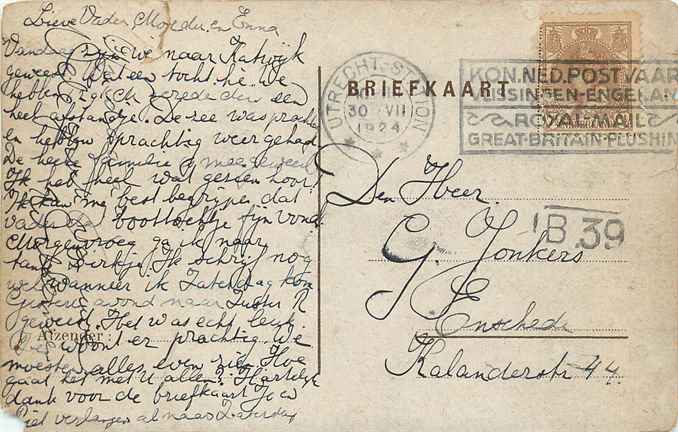 Lieve Vader, Moeder, en Enna
Vandaag zijn we naar Katwijk
geweest. Wat een tocht he. We
hebben gereden een
heel afstandje. De zee was prachtig
en hebben prachtig weer gehad
De heele familie mee geweest
Ik heb heel wat gezien hoor!
Ik kan me best begrijpen, dat
vader boottochtje fijn vond.
Morgenvroeg ga ik naar
tante . Ik schrijf nog
wel wanneer ik Zaterdag kom
avond naar
geweest. Het was echt leuk.
woont er prachtig. We
moesten alles even zien. Hoe
gaat het met U allen? Hartelijk
dank voor de briefkaart.
verlangen al naar Zaterdag
Afzender:
BRIEFKAART
UTRECHT-STATION
30 VII
1924
KON.NED.POSTVAAR
VLISSINGEN-ENGELAN
ROYAL-MAIL
GREAT-BRITAIN-FLUSHIN
Den Heer
G. Jonkers
Enschede
Kalanderstr 44.
B.39